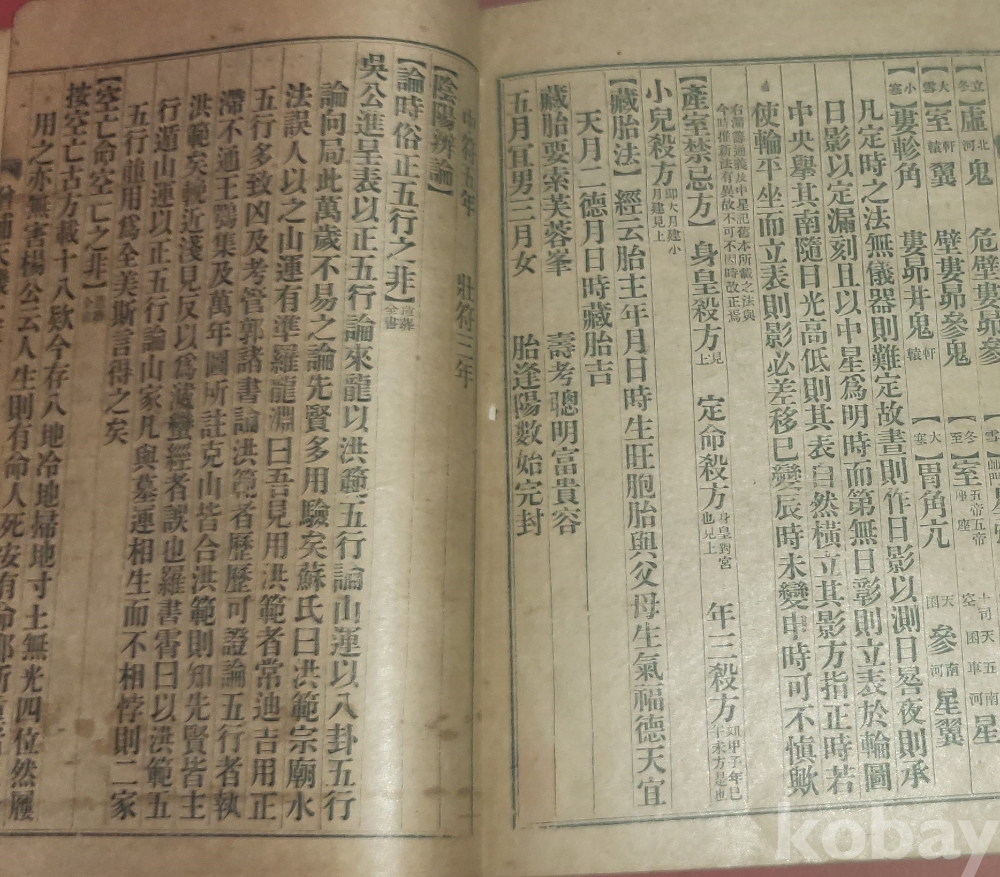 立冬【虛北河鬼 危壁婁昴參 雪
大雪【室軒轅翼 壁婁昴參鬼 冬至【室五帝座五帝座 南河星
小寒【婁軫角 婁昴井鬼軒轅 大寒【胃角亢 參南河星翼
凡定時之法無儀器則難定故晝則作日影以測日晷夜則承
日影以定漏刻且以中星爲明時而第無日彰則立表於輪圖
中央擧其南隨日光高低則其表自然橫立其影方指正時若
使輪平坐而立表則影必差移巳變辰時未變申時可不愼歟
【產室禁忌方】身皇殺方見上 定命殺方身皇對宮也見上 年三殺方如甲子年巳午未方是也
小兒殺方卽大月建小月建見上
【藏胎法】經云胎王年月日時生旺胞胎與父母生氣福德天宜
天月二德月日時藏胎吉
藏胎要索芙蓉峯 壽考聰明富貴容
五月宜男三月女 胎逢陽數始完封
中符五年 壯符三年
【陰陽辨論】
【論時俗正五行之非】
吳公進呈表以正五行論來龍以洪範五行論山運以八卦五行
論向局此萬歲不易之論先賢多用驗矣蘇氏曰洪範宗廟水
法誤人以之山運有準羅龍淵曰吾見用洪範者常迪吉用正
五行多致凶及考管郭諸書論洪範者歷歷可證論五行者執
滯不通王鸚集及萬年圖所註克山皆合洪範則知先賢皆主
洪範矣輓近淺見反以爲滅蠻經者誤也羅書霄曰以洪範五
行遁山運以正五行論山家凡與墓運相生而不相悖則二家
五行並用爲全美斯言得之矣
【空亡命空亡之非】
按空亡古方載十八欵今存八地冷地掃地寸土無光四位然屢
用之亦無害楊公云人生則有命人死安有命